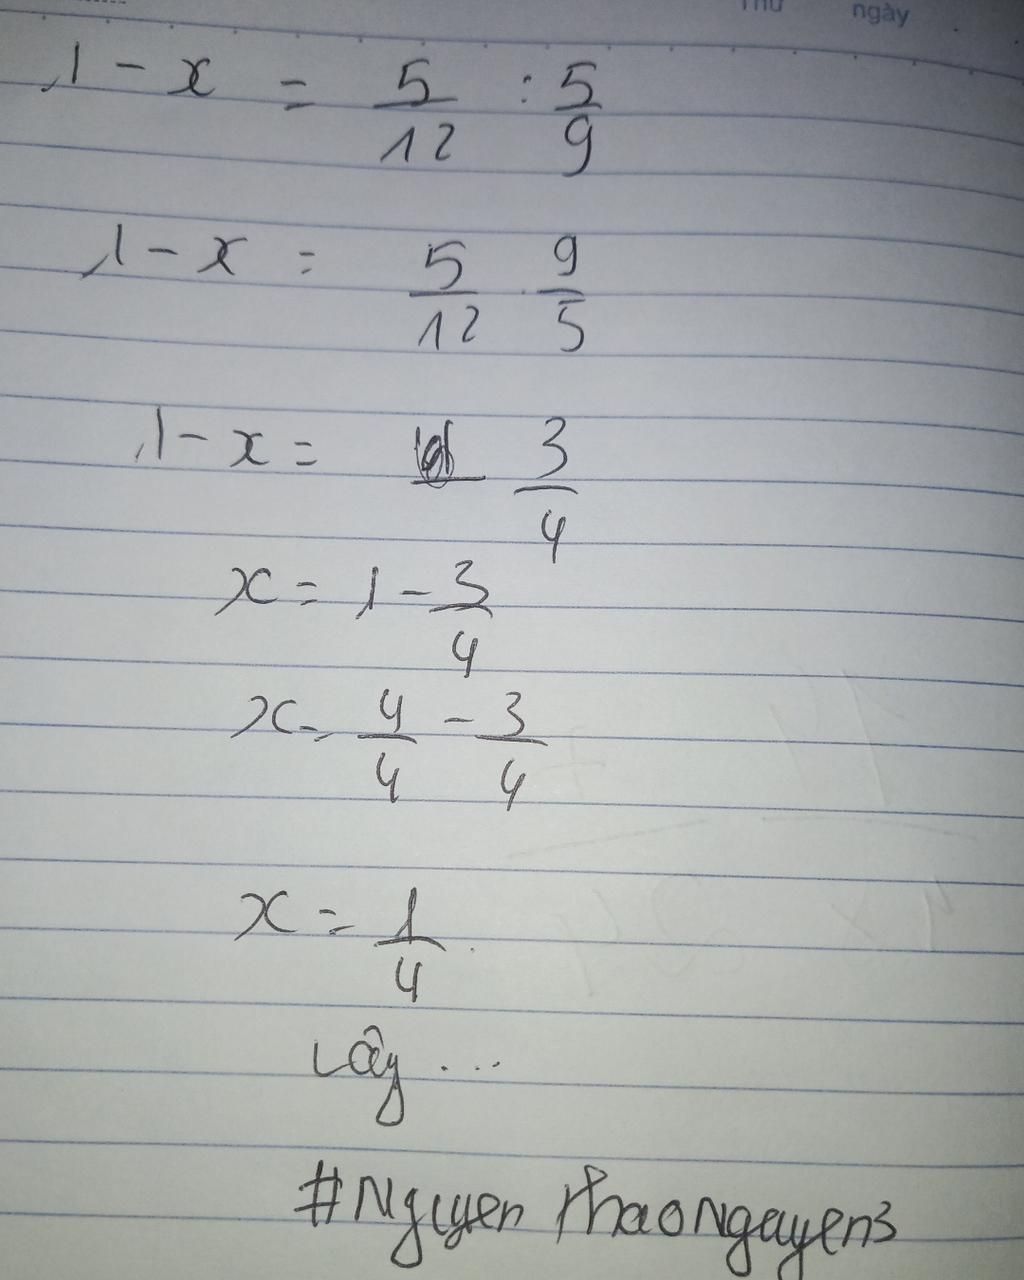 Thứ ngày
1 - x = 5/12 : 5/9
1 - x = 5/12 . 9/5
1 - x = 3/4
x = 1 - 3/4
x = 4/4 - 3/4
x = 1/4
Vậy ...
#Nguyen thaoNguyen3